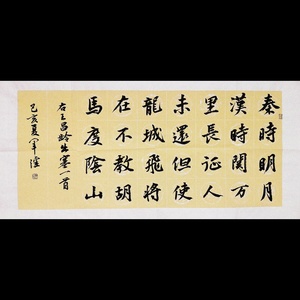 秦時明月
漢時關万
里長征人
未還但使
龍城飛將
在不教胡
馬度陰山
右王昌齡出塞一首
己亥夏